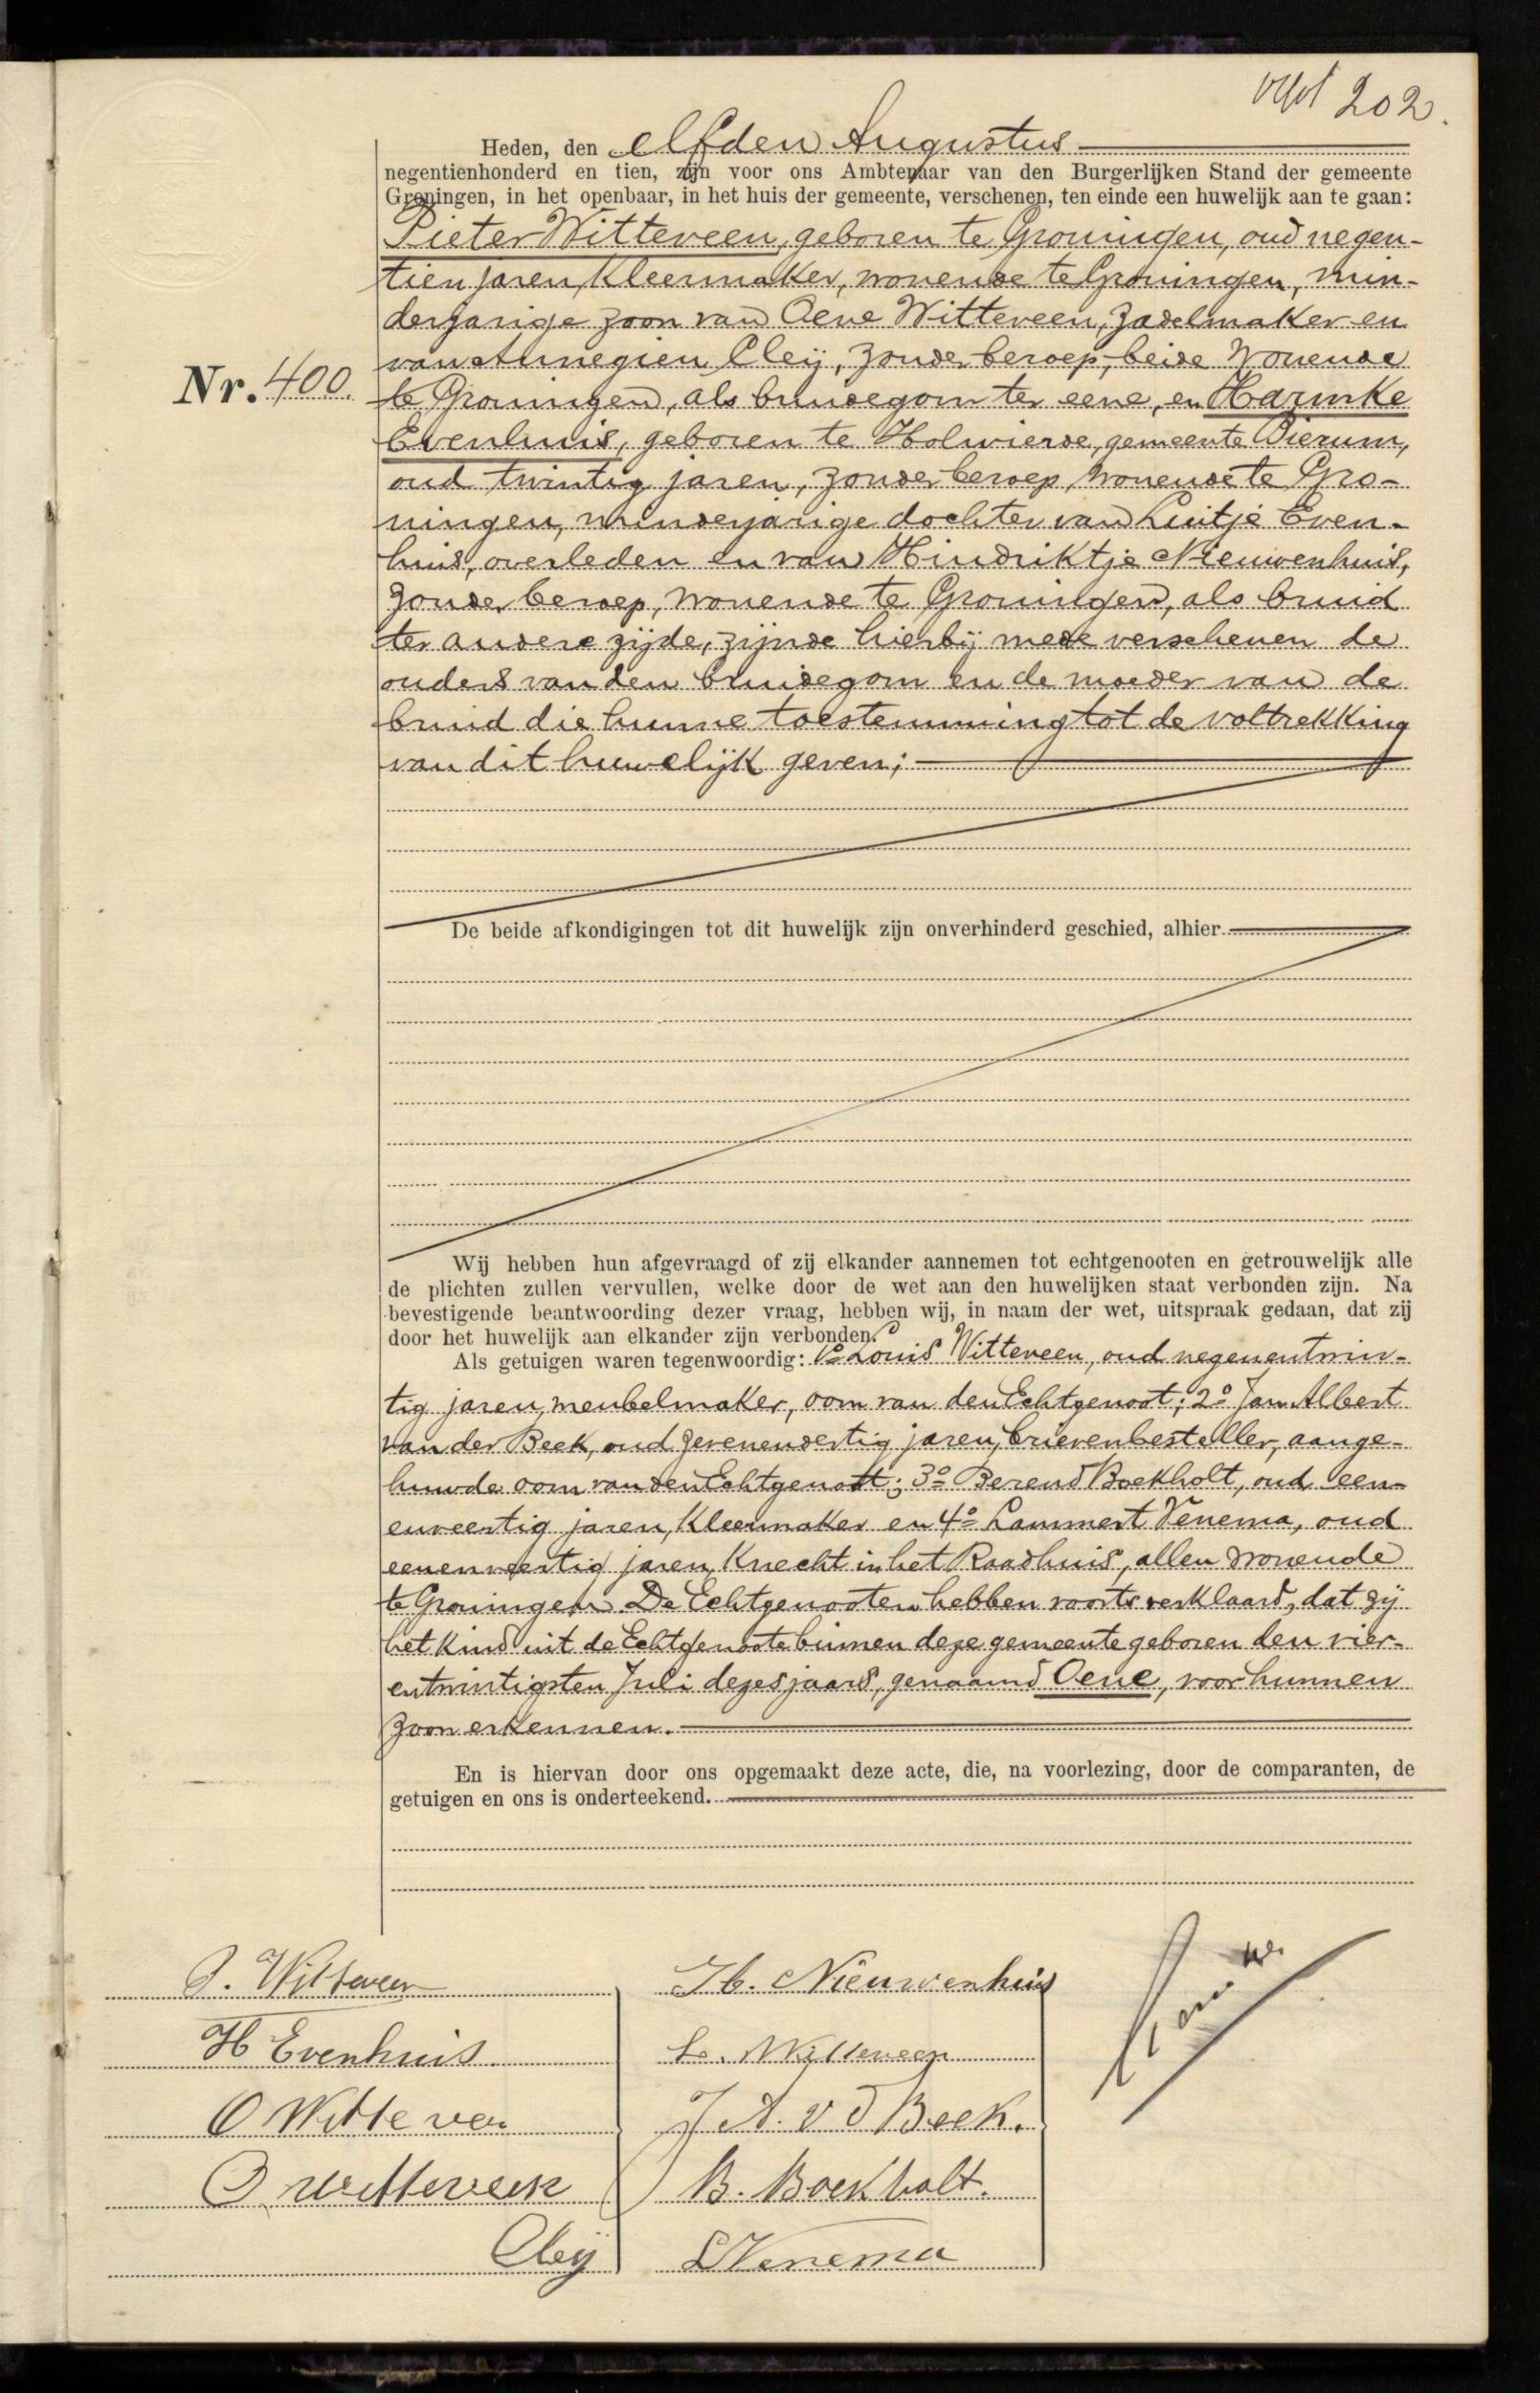 202.
Heden, den elfden Augustus
negentienhonderd en tien, zijn voor ons Ambtenaar van den Burgerlijken Stand der gemeente
Groningen, in het openbaar, in het huis der gemeente, verschenen, ten einde een huwelijk aan te gaan:
Pieter Witteveen, geboren te Groningen, oud negen-
tien jaren, Kleermaker, wonende te Groningen, min-
derjarige zoon van Oene Witteveen, zadelmaker en
van Annegien Cleij, zonder beroep, beide wonende
Nr. 400.
te Groningen, als bruidegom ter eene, en Harmke
Evenhuis, geboren te Holwierde, gemeente Bierum,
oud twintig jaren, zonder beroep, wonende te Gro-
ningen, minderjarige dochter van Luitje Even-
huis, overleden en van Hindriktje Nieuwenhuis,
zonder beroep, wonende te Groningen, als bruid
ter andere zijde, zijnde hierbij mede verschenen de
ouders van den bruidegom en de moeder van de
bruid die hunne toestemming tot de voltrekking
van dit huwelijk geven;
De beide afkondigingen tot dit huwelijk zijn onverhinderd geschied, alhier.
Wij hebben hun afgevraagd of zij elkander aannemen tot echtgenooten en getrouwelijk alle
de plichten zullen vervullen, welke door de wet aan den huwelijken staat verbonden zijn. Na
bevestigende beantwoording dezer vraag, hebben wij, in naam der wet, uitspraak gedaan, dat zij
door het huwelijk aan elkander zijn verbonden.
Als getuigen waren tegenwoordig: 1º Louis Witteveen, oud negenentwin-
tig jaren, meubelmaker, oom van den Echtgenoot; 2º Jan Albert
van der Beek, oud zevenendertig jaren, brievenbesteller, aange-
huwde oom van den Echtgenoot; 3º Berend Boekholt, oud een-
enveertig jaren, Kleermaker en 4º Lammert Venema, oud
eenenveertig jaren, Knecht in het Raadhuis, allen wonende
te Groningen. De Echtgenooten hebben voorts verklaard, dat zij
het kind uit de Echtgenoote binnen deze gemeente geboren den vier-
entwintigsten Juli dezes jaars, genaamd Oene, voor hunnen
zoon erkennen.
En is hiervan door ons opgemaakt deze acte, die, na voorlezing, door de comparanten, de
getuigen en ons is onderteekend.
P. Witteveen
H Evenhuis
O Witteveen
Witteveen
Cleij
H. Nieuwenhuis
L. Witteveen
J A. v d Beek.
B. Boekholt.
L Venema